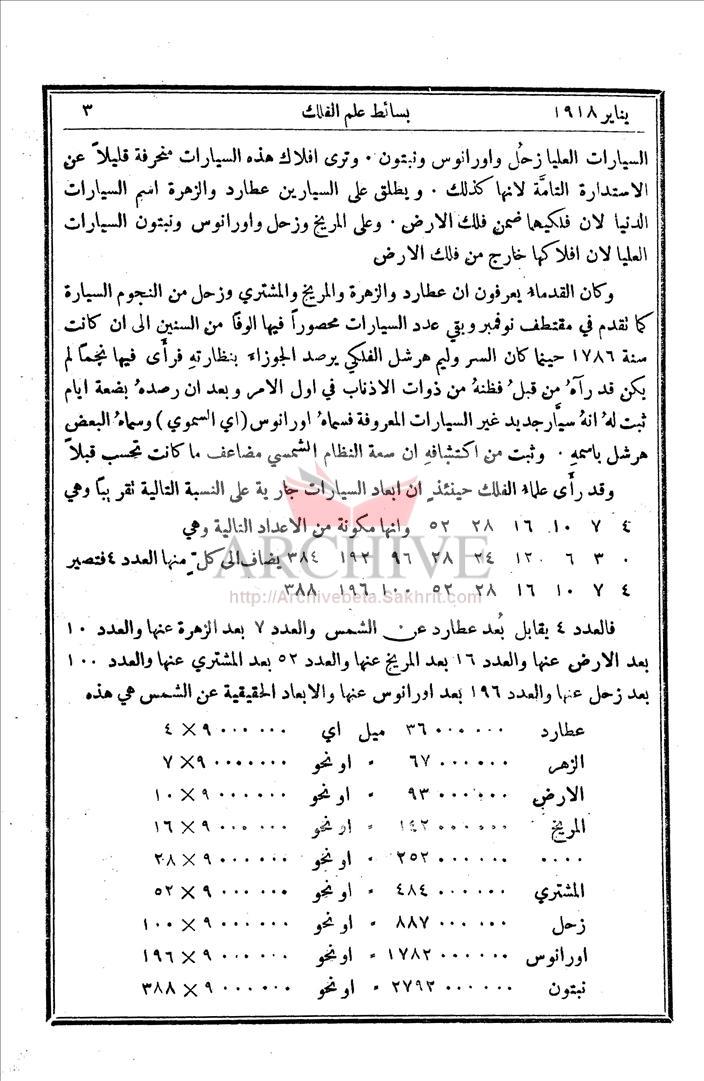 يناير ١٩١٨ بسائط علم الفلك ٣
السيارات العليا زحل واورانوس ونبتون ٠ وترى افلاك هذه السيارات منحرفة قليلاً عن
الاستدارة التامَّة لانها كذلك ٠ ويطلق على السيارين عطارد والزهرة اسم السيارات
الدنيا لان فلكيهما ضمن فلك الارض ٠ وعلى المريخ وزحل واورانوس ونبتون السيارات
العليا لان افلاكها خارج من فلك الارض
وكان القدماءُ يعرفون ان عطارد والزهرة والمريخ والمشتري وزحل من النجوم السيارة
كما نقدم في مقتطف نوفمبر وبقي عدد السيارات محصوراً فيها الوفاً من السنين الى ان كانت
سنة ١٧٨٦ حينما كان السر وليم هرشل الفلكي يرصد الجوزاء بنظارتهِ فرأَى فيها نجماً لم
يكن قد رآهُ من قبلُ فظنهُ من ذوات الاذناب في اول الامر وبعد ان رصدهُ بضعة ايام
ثبت لهُ انهُ سيَّار جديد غير السيارات المعروفة فسماهُ اورانوس (اي السموي) وسماهُ البعض
هرشل باسمهِ ٠ وثبت من اكتشافهِ ان سعة النظام الشمسي مضاعف ما كانت تحسب قبلاً
وقد رأَى علماءُ الفلك حينئذٍ ان ابعاد السيارات جارية على النسبة التالية نقريبًا وهي
٤ ٧ ١٠ ١٦ ٢٨ ٥٢ وانها مكونة من الاعداد التالية وهي
٠ ٣ ٦ ١٢٠ ٢٤ ٢٨ ٩٦ ١٩٢ ٣٨٤ يضاف الى كلٍّ منها العدد ٤ فتصير
٤ ٧ ١٠ ١٦ ٢٨ ٥٢ ١٠٠ ١٩٦ ٣٨٨
ARCHIVE
http://Archivebeta.Sakhrit.com
فالعدد ٤ يقابل بُعد عطارد عن الشمس والعدد ٧ بعد الزهرة عنها والعدد ١٠
بعد الارض عنها والعدد ١٦ بعد المريخ عنها والعدد ٥٢ بعد المشتري عنها والعدد ١٠٠
بعد زحل عنها والعدد ١٩٦ بعد اورانوس عنها والابعاد الحقيقية عن الشمس هي هذه
عطارد ٣٦٠٠٠٠٠٠ ميل اي ٩٠٠٠٠٠٠ × ٤
الزهر ٦٧٠٠٠٠٠٠ " او نحو ٩٠٠٠٠٠٠ × ٧
الارض ٩٣٠٠٠٠٠٠ " او نحو ٩٠٠٠٠٠٠ × ١٠
المريخ ١٤٢٠٠٠٠٠٠ " او نحو ٩٠٠٠٠٠٠ × ١٦
٠٠٠٠ ٢٥٢٠٠٠٠٠٠ " او نحو ٩٠٠٠٠٠٠ × ٢٨
المشتري ٤٨٤٠٠٠٠٠٠ " او نحو ٩٠٠٠٠٠٠ × ٥٢
زحل ٨٨٧٠٠٠٠٠٠ " او نحو ٩٠٠٠٠٠٠ × ١٠٠
اورانوس ١٧٨٢٠٠٠٠٠٠ " او نحو ٩٠٠٠٠٠٠ × ١٩٦
نبتون ٢٧٩٢٠٠٠٠٠٠ " او نحو ٩٠٠٠٠٠٠ × ٣٨٨